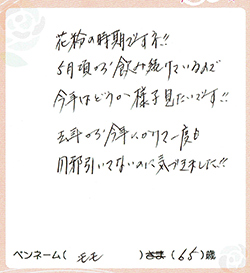 花粉の時期ですネ!!
5月頃から飲み続けているので
今年はどうか様子見たいです!!
去年から今年にかけて一度も
风邪引いてないのに気づきました!!
ペンネーム( モモ )さま(65)歳